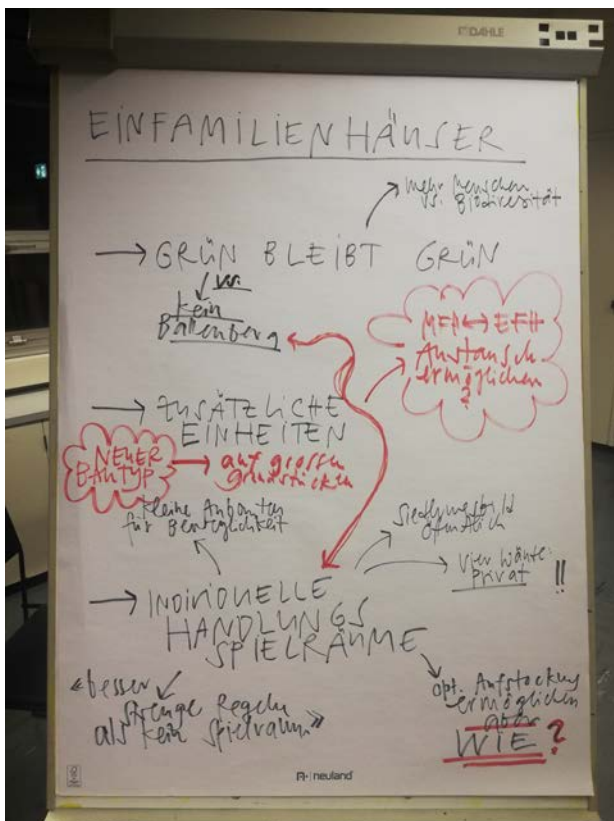 DAHLE
EINFAMILIENHÄUSER
mehr Menschen
vs. Biodiversität
→ GRÜN BLEIBT GRÜN
vs.
kein
Ballenberg
MFH ↔ EFH
Austausch
ermöglichen
?
→ ZUSÄTZLICHE
EINHEITEN
NEUER
BAUTYP
→ auf grossen
Grundstücken
kleine Anbauten
für Beweglichkeit
Siedlungsbild
öffentlich
Vier Wände:
privat !!
→ INDIVIDUELLE
HANDLUNGS
SPIELRÄUME
«besser
strenge Regeln
als kein Spielraum»
opt. Aufstockung
ermöglichen
aber
WIE?
neuland